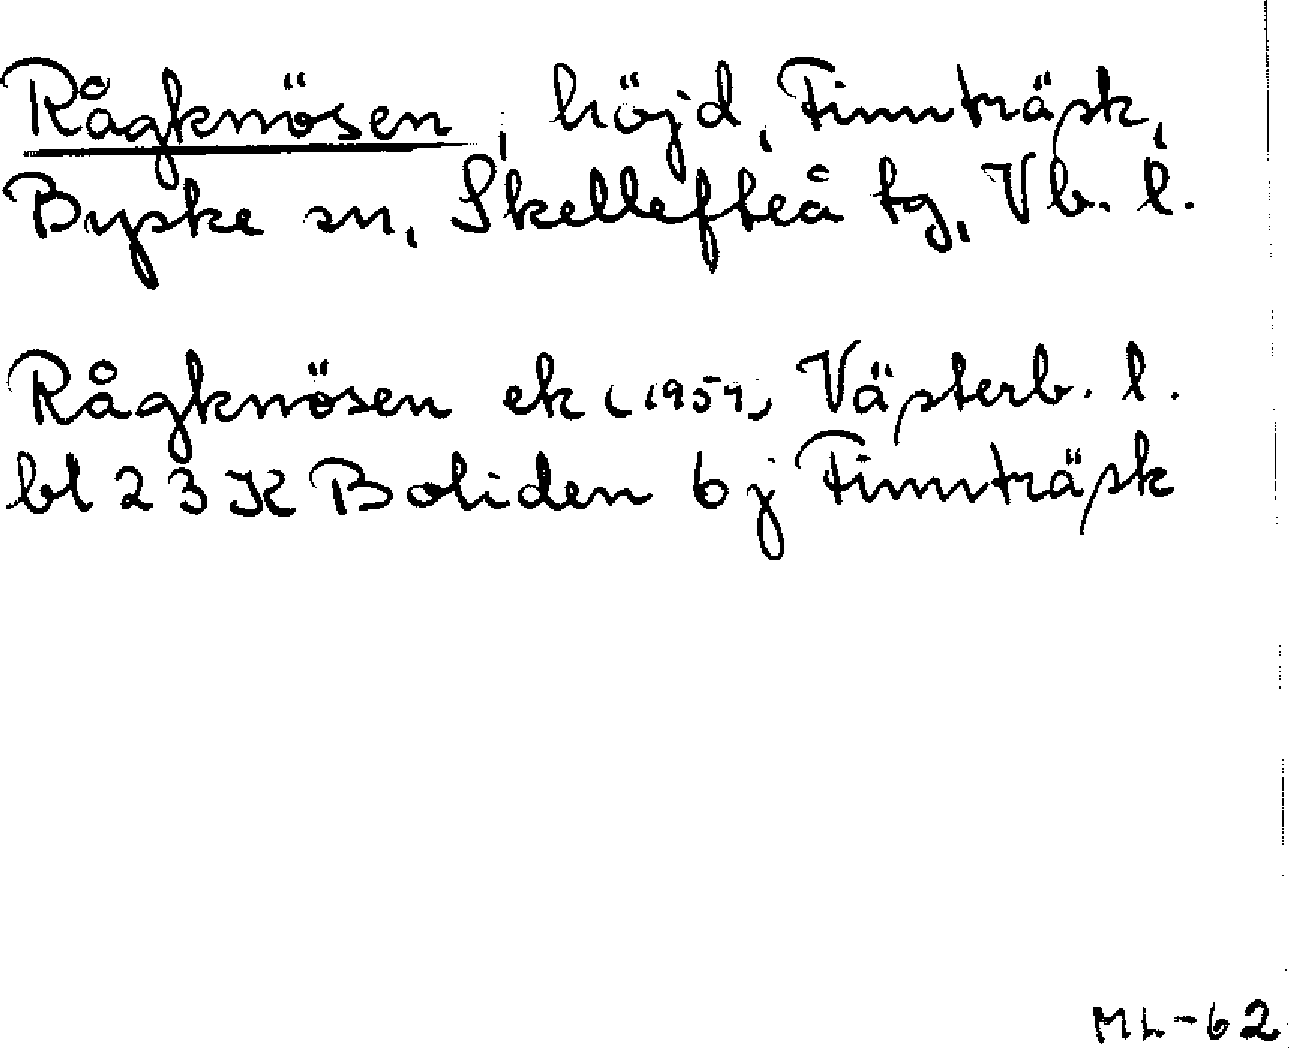 Rågknösen, höjd, Finnträsk,
Byske sn, Skellefteå tg, Vb. l.
Rågknösen ek (1959) Västerb. l.
bl 23 K Boliden 6j Finnträsk
ML-62